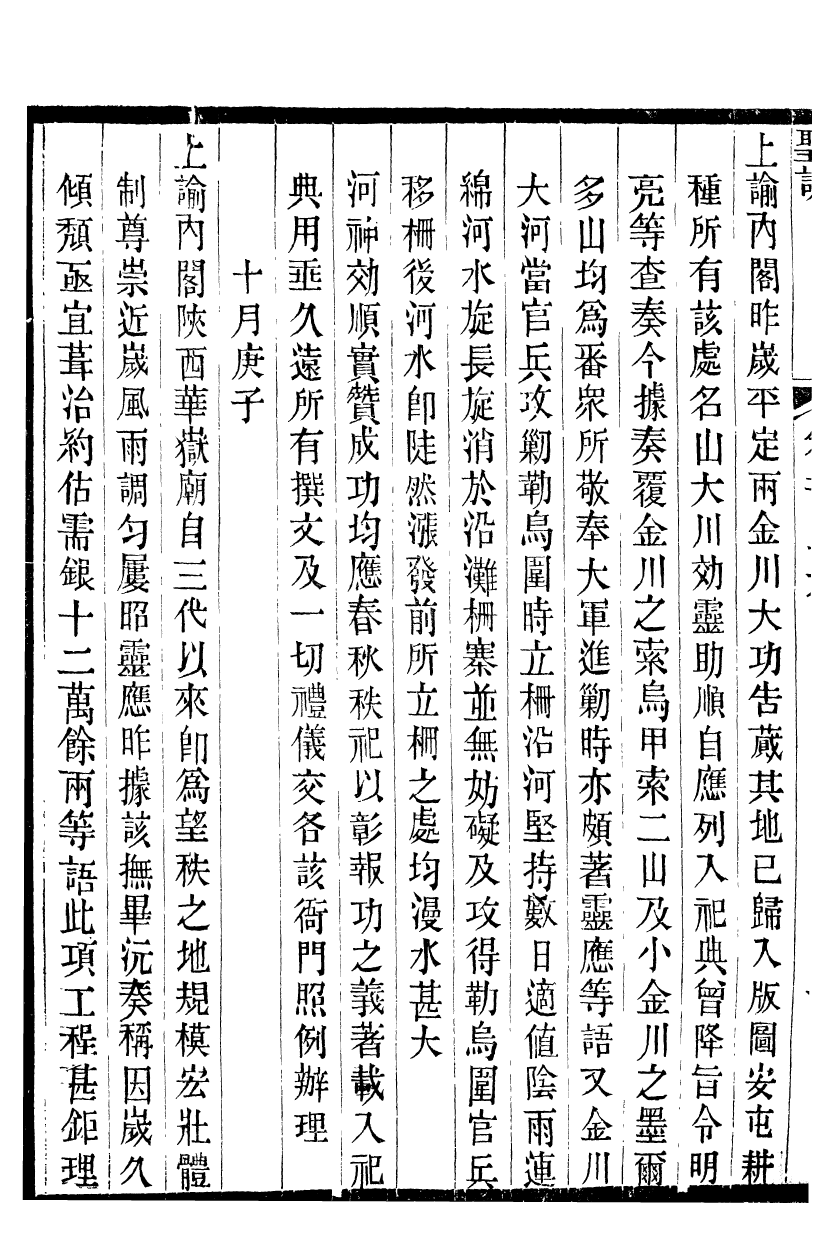 上諭內閣昨歲平定兩金川大功告蕆其地已歸入版圖安屯耕
種所有該處名山大川効靈助順自應列入祀典曾降旨令明
亮等查奏今據奏覆金川之索烏甲索二山及小金川之墨爾
多山均為番衆所敬奉大軍進勦時亦頗著靈應等語又金川
大河當官兵攻勦勒烏圍時立柵沿河堅持數日適值陰雨連
綿河水旋長旋消於沿灘柵寨並無妨礙及攻得勒烏圍官兵
移柵後河水卽陡然漲發前所立柵之處均漫水甚大
河神効順實贊成功均應春秋秩祀以彰報功之義著載入祀
典用垂久遠所有撰文及一切禮儀交各該衙門照例辦理
十月庚子
上諭內閣陝西華嶽廟自三代以來卽為望秩之地規模宏壯體
制尊崇近歲風雨調勻屢昭靈應昨據該撫畢沅奏稱因歲久
傾頹亟宜葺治約估需銀十二萬餘兩等語此項工程甚鉅理